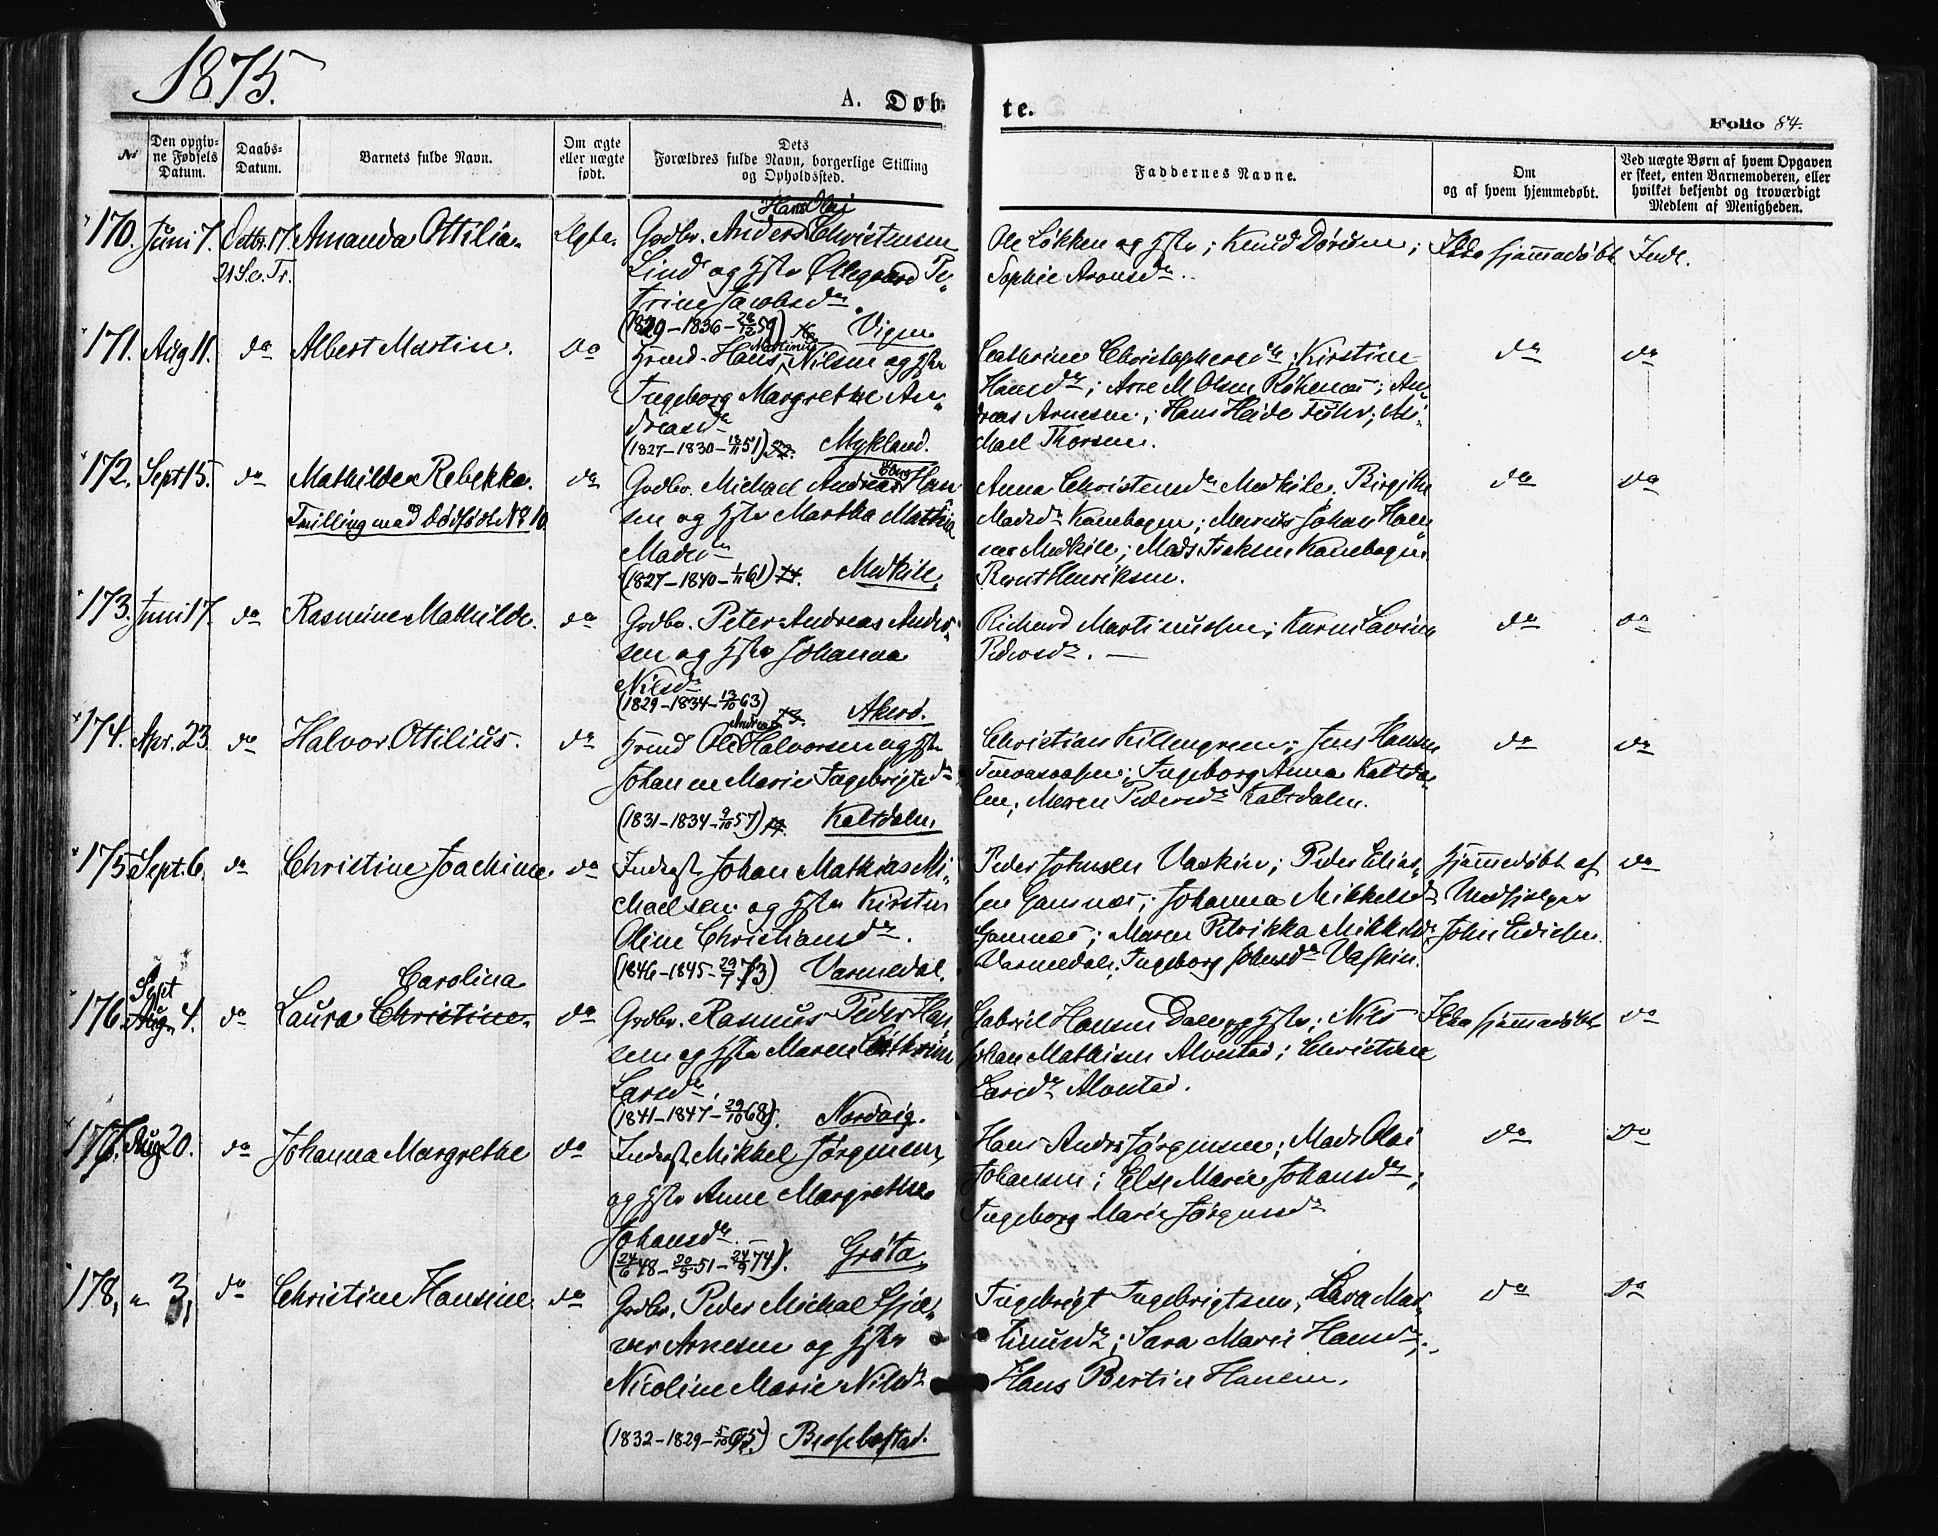 1875.
A. Døb-
te.
Folio 84.
No
Den opgiv-
ne Fødsels
Datum.
Daabs-
Datum.
Barnets fulde Navn.
Om ægte
eller uægte
født.
Dets
Forældres fulde Navn, borgerlige Stilling
og Opholdssted.
Faddernes Navne.
Om
og af hvem hjemmedøbt.
Ved uægte Børn af hvem Opgaven
er skeet, enten Barnemoderen, eller
hvilket bekjendt og troværdigt
Medlem af Menigheden.
170. Juni 7. Octbr. 17 Amanda Ottilia. Ægte.
21 S. e. Tr.
Hans Olai
Gdbr. Anders Christensen
Lind og Hstr Øllegaard Pe-
trine Jacobsdr.
(1829–1836–28/12 59) Vigen
Ole Løkken og Hstr; Knud Dørum;
Sophie Aronsdr.
Ikke hjemmedøbt Indl.
171. Aug 11. do Albert Martin. Do
Martinus
Hmd. Hans Nilsen og Hstr
Ingeborg Margrethe An-
dreasdr
(1827–1830–18/11 51) Mykland.
Cathrine Christophersdr; Kirstine
Hansdr; Arne M. Olsen Røkenes; An-
dreas Arnesen; Hans Heide Föhr; Mi-
chael Thorsen.
do do
172. Sept 15. do Mathilde Rebekka. do
Tvilling med Dødfødt No 10
Gdbr. Michael Andreas Han
sen og Hstr Martha Mathia
Madsdr
(1827–1840–1/11 61) 14. Medkile.
Anna Christensdr Medkile; Birgithe
Madsdr Kanebogen; Marcus Johan Han
sen Medkile; Mads Isaksen Kanebogen
Bernt Henriksen.
do do
173. Juni 17. do Rasmine Mathilde. do
Gdbr. Peter Andreas Ander-
sen og Hstr Johanna
Nilsdr
(1829–1834–13/10 63) Akerø.
Richard Martinussen; Karen Lavina
Pedersdr.
do do
174. Apr. 23 do Halvor Ottilius. do
Andreas
Hmd Ole Halvorsen og Hstr
Johanne Marie Ingebrigtsdr
(1831–1834–9/10 57) Kaltdalen.
Christian Killengreen; Jens Hansen
; Ingeborg Anna Kaltda-
len; Maren Pedersdr Kaltdalen.
do do
175 Sept. 6. do Christine Joachime. do
Inderst Johan Mathias Mi-
chaelsen og Hstr Kirsten
Oline Christiansdr.
(1846–1845–29/7 73) Varmedal.
Peder Johnsen Vaskin; Peder Elias-
sen Gamnæs; Johanna Mikkelsdr
Gamnæs; Maren Petrikka Mikkelsdr
Varmedal; Ingeborg Johnsdr Vaskin.
Hjemmedøbt af
Medhjelper
John Edissen.
do
Sept
Carolina
176. Aug. 4. do Laura Christine. do
Gdbr. Rasmus Peder Han
sen og Hstr Maren Cathrine
Larsdr.
(1841–1847–29/10 68). Nordvig.
Gabriel Hansen Dale og Hstr; Nils
Johan Mathisen Alvestad; Christiane
Larsdr Alvestad.
Ikke hjemmedøbt do
177. Aug 20. do Johanna Margrethe do
Inderst Mikkel Jørgensen
og Hstr Anne Margrethe
Johansdr.
(24/6 48–20/5 51–24/9 74). Grøta
Hans Andr. Jørgensen; Mads Olai
Johansen; Else Marie Johansdr;
Ingeborg Marie Jørgensdr
do Do
178. " 3. do Christine Hansine do
Gdbr. Peder Michal Gjæ-
ver Arnesen og Hstr
Nicoline Marie Nilsdr
(1832–1829–5/10 65) Bessebostad.
Ingebrigt Ingebrigtsen; Lava Mar-
tinusdr; Sara Marie Hansdr;
Hans Bertin Hansen.
do Do